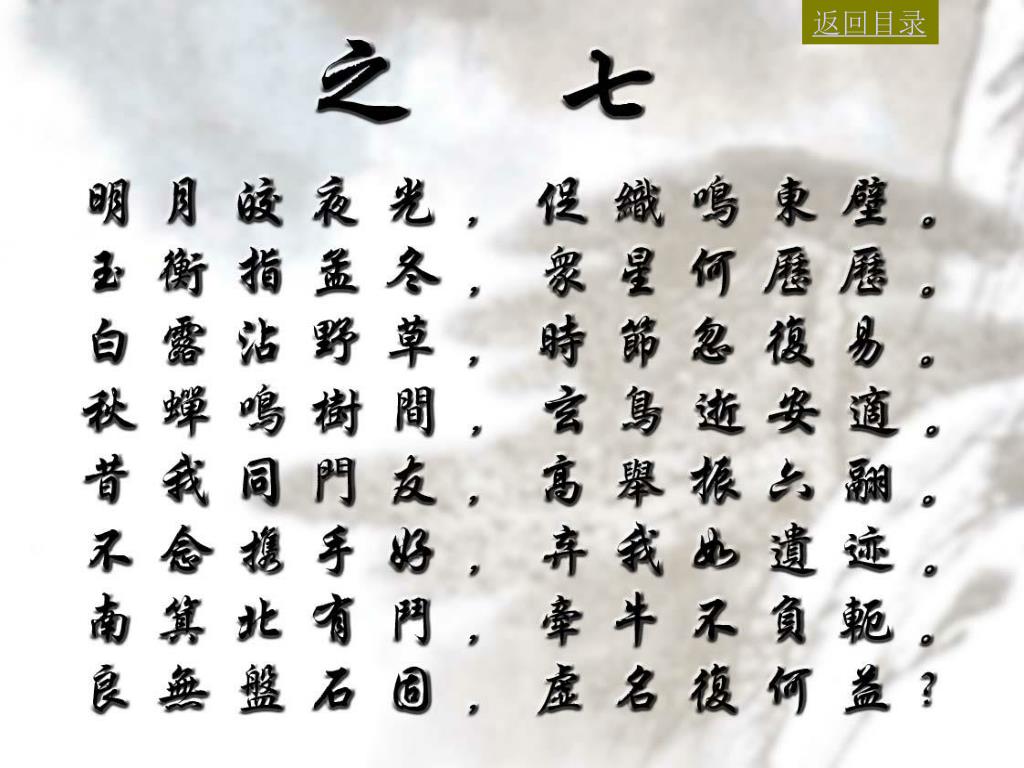 返回目录
之 七
明月皎夜光，促織鳴東壁。
玉衡指孟冬，衆星何歷歷。
白露沾野草，時節忽復易。
秋蟬鳴樹間，玄鳥逝安適。
昔我同門友，高舉振六翮。
不念携手好，弃我如遺迹。
南箕北有鬥，牽牛不負軛。
良無盤石固，虛名復何益？